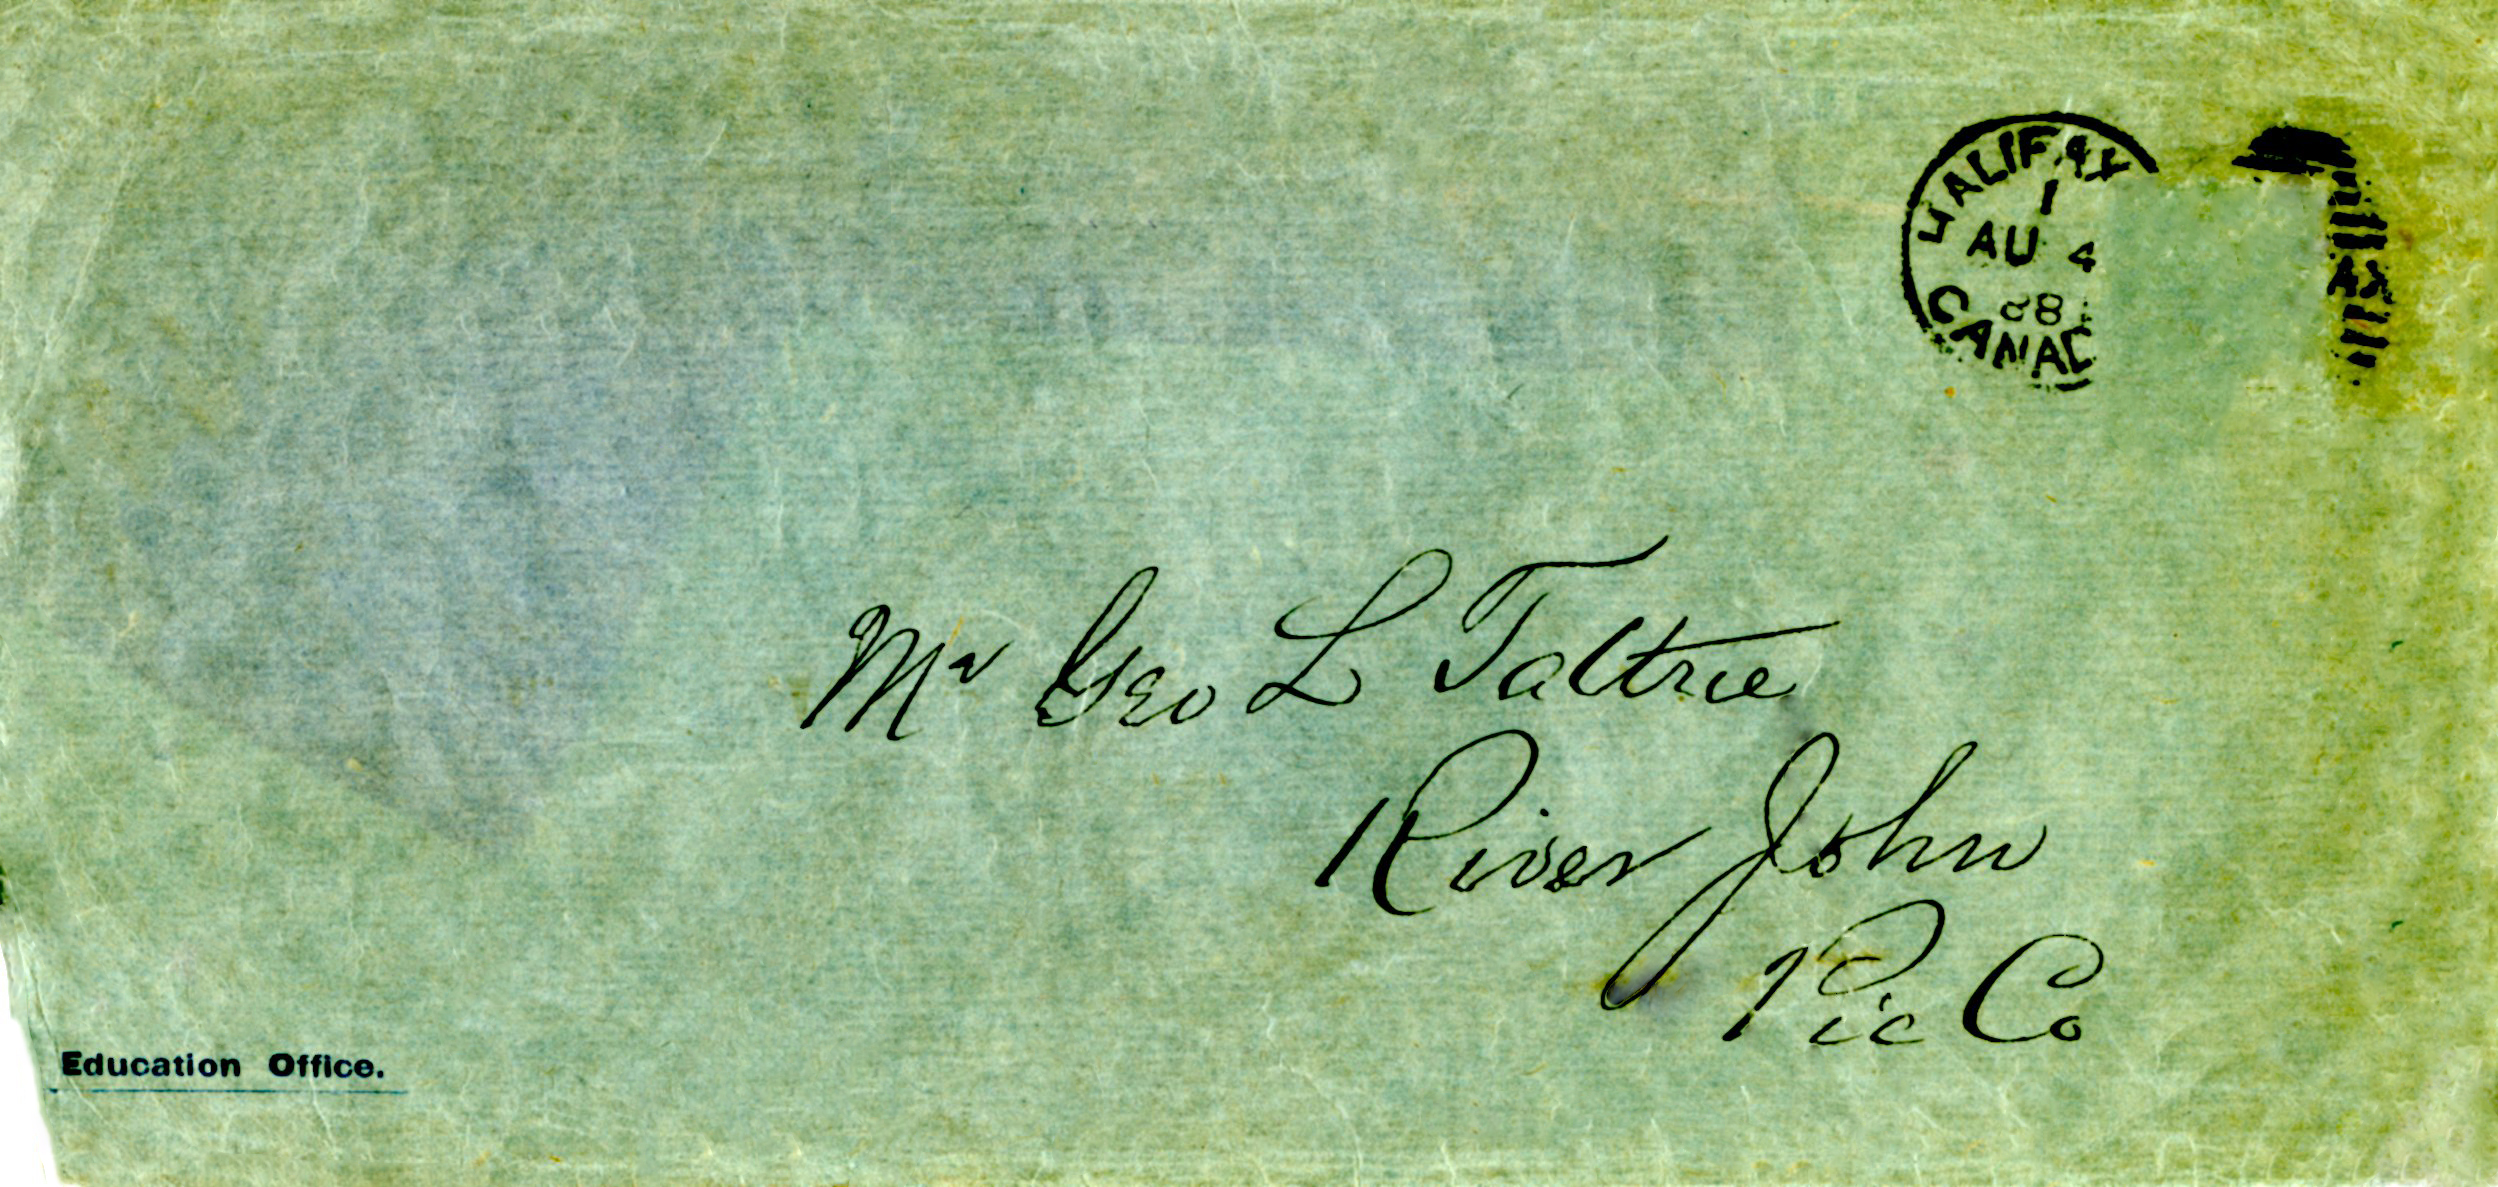 HALIFAX
1
AU 4
88
CANAD
Mr Geo L Tattrie
River John
Pic Co
Education Office.